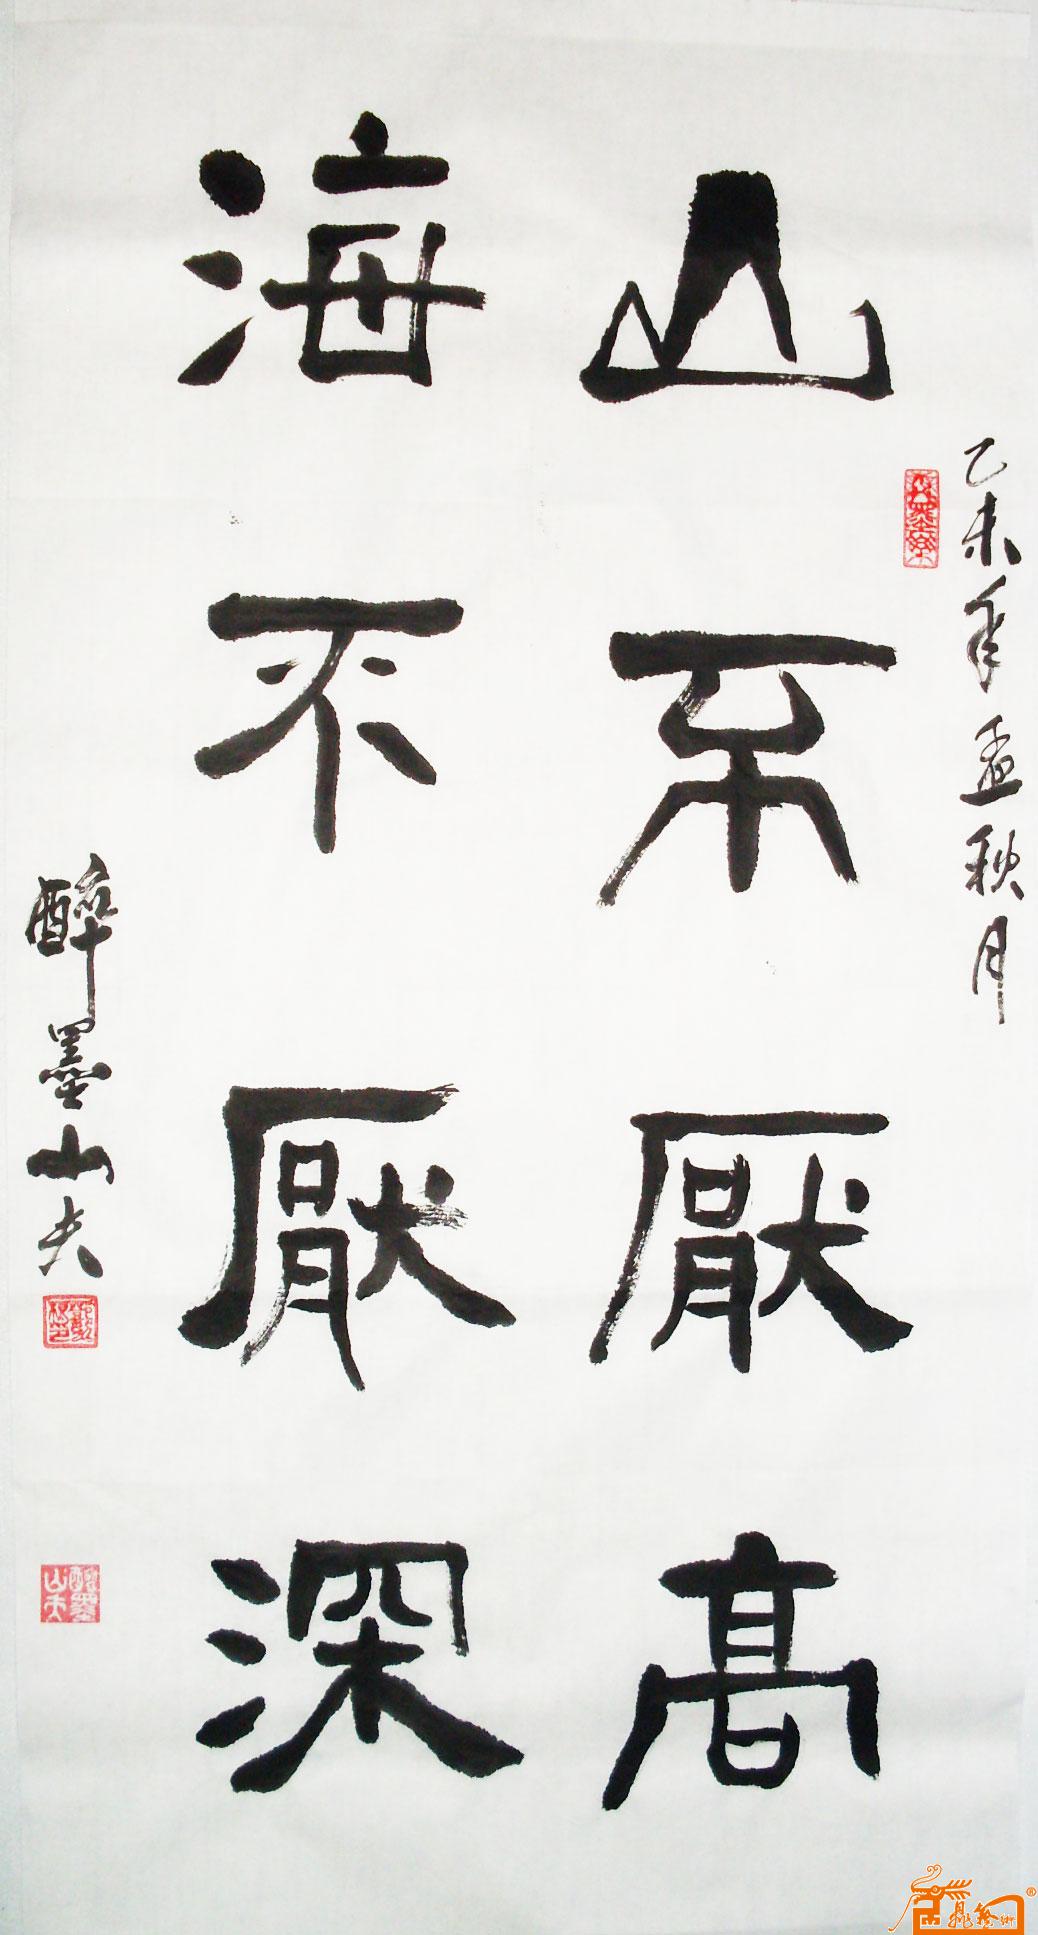 乙未年孟秋月
山不厭高
海不厭深
醉墨山夫
醉墨山夫